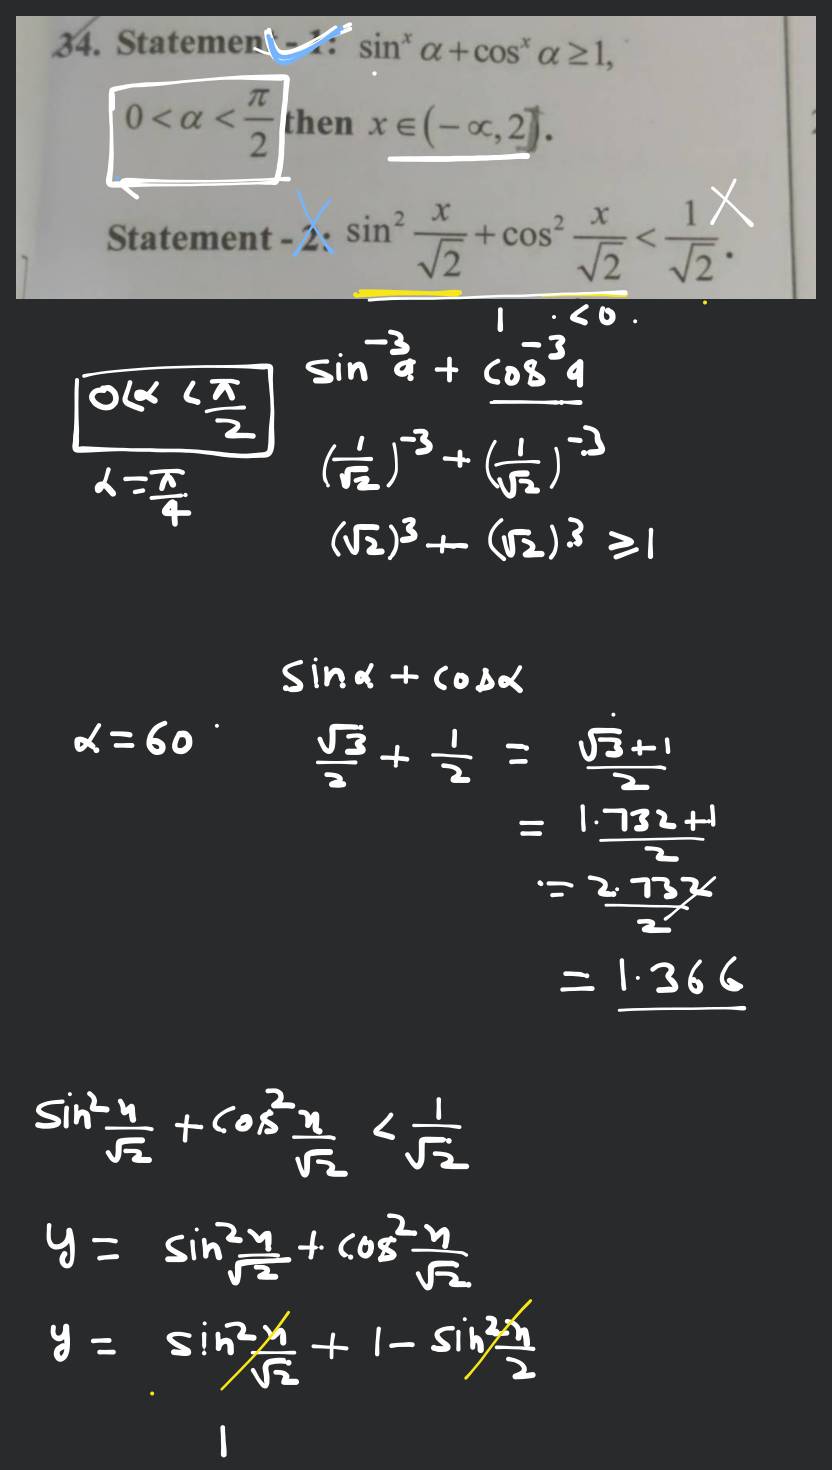 34. Statement - 1: sin^x α + cos^x α ≥ 1,
0 < α < π/2 then x ∈ (-∝, 2].
Statement - 2: sin² x/√2 + cos² x/√2 < 1/√2.
1 . < 0 .
sin⁻³ α + cos⁻³ α
0 < α < π/2
(1/√2)⁻³ + (1/√2)⁻³
α = π/4
(√2)³ + (√2)³ ≥ 1
sin α + cos α
α = 60
√3/2 + 1/2 = √3+1/2
= 1.732+1/2
= 2.732/2
= 1.366
sin² x/√2 + cos² x/√2 < 1/√2
y = sin² x/√2 + cos² x/√2
y = sin² x/√2 + 1 - sin² x/2
1